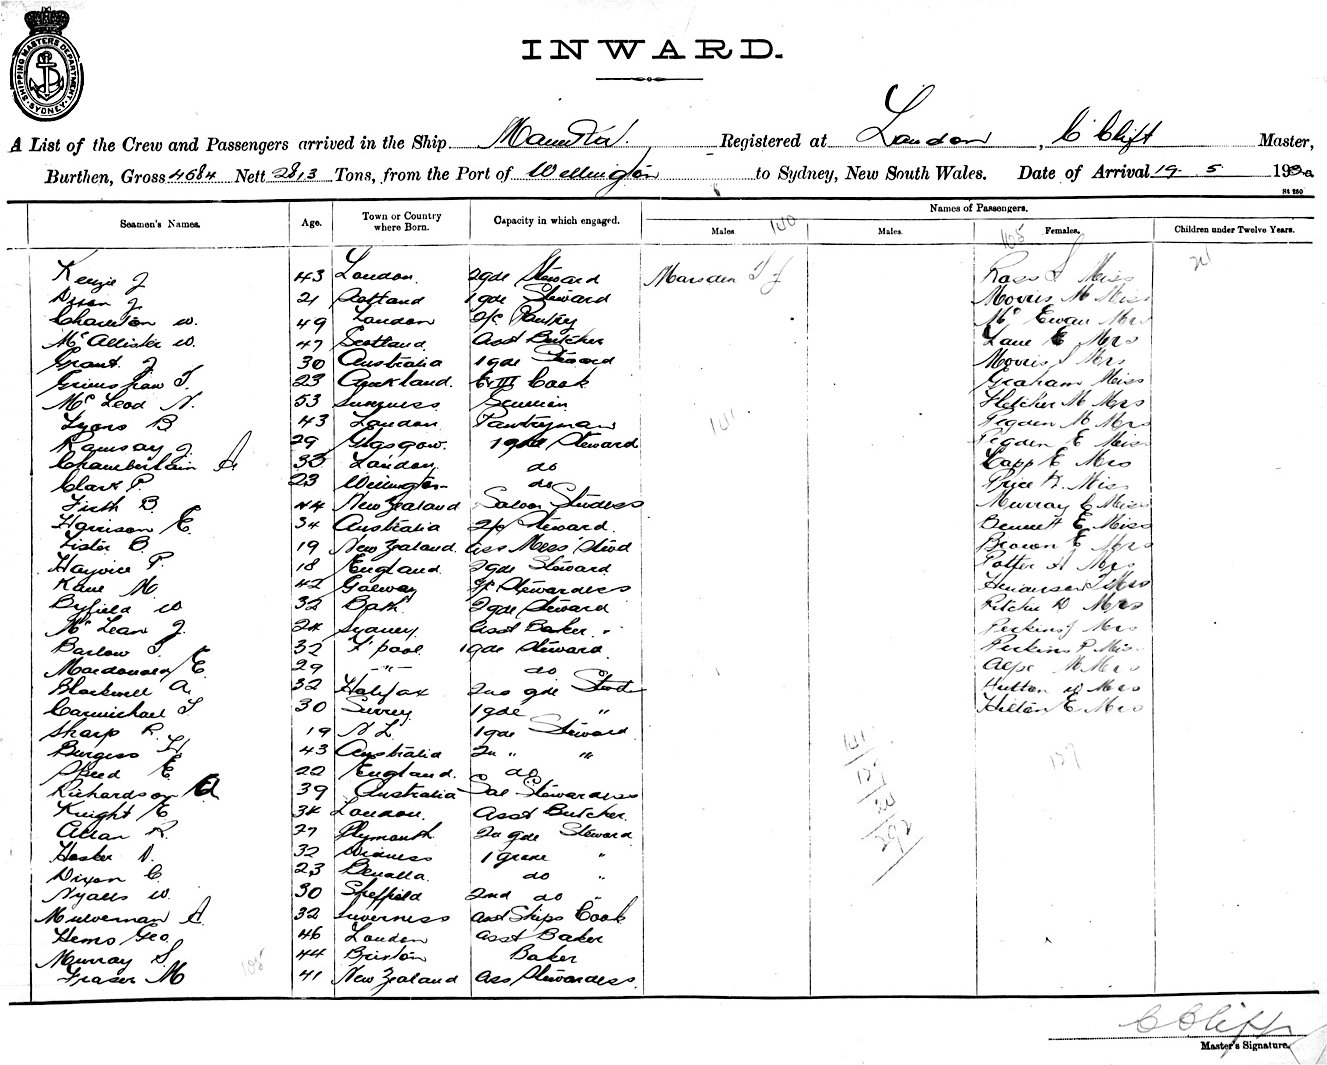 SHIPPING MASTERS DEPARTMENT SYDNEY
INWARD.
A List of the Crew and Passengers arrived in the Ship Registered at London, C Clift Master,
Burthen, Gross 4584 Nett 2813 Tons, from the Port of Wellington to Sydney, New South Wales. Date of Arrival 19 5 19
S4 250
Seamen's Names. Age. Town or Country where Born. Capacity in which engaged. Names of Passengers.
Males 140 Males. 105 Females. Children under Twelve Years.
24
Kenzie J 43 London 2gde Steward Marsden T J Ross S Miss
Dixon J 21 1gde Steward Morris M Miss
Charlton W. 49 London Pantry McEwan Mrs
McAllister W. 47 Scotland Asst Butcher Lane E Mrs
Grant J 30 Australia 1gde Steward Morris J Mrs
Grimshaw T. 23 Auckland. Cook Graham Miss
McLeod N. 53 Scullion Fletcher M Mrs
Lyons B 43 London Pantryman Tegden M Mrs
Ramsay J. 29 Glasgow. 1gde Steward Tegden E Miss
Chamberlain A 33 London do Capp E Mrs
Clark P. 23 Wellington do Price Miss
Firth B. 44 New Zealand Saloon Murray C Miss
Harrison E. 34 Australia Steward. Bennett E Miss
Lister B. 19 New Zealand. Ass Mess Stwd Brown E Mrs
P. 18 England. 2gde Steward Potter A Mrs
Kane M 42 Galway Stewardess Mrs
Byfield W 32 Bath 2gde Steward Ritchie D Mrs
McLean J. 24 Sydney Asst Baker. Perkins J Mrs
Barlow T. 32 L'pool 1gde Steward Perkins P Miss
Macdonald E 29 -"- do M Mrs
Blackwell A. 32 Halifax 2nd gde Hutton W Mrs
Carmichael T 30 Surrey 1gde " Hilton E Mrs
Sharp R. 19 N Z. 1gde Steward
Burgess H 43 Australia 2n " "
Speed E. 22 England. do
Richardson A 39 Australia Sal Stewardess
Knight E 34 London. Asst Butcher.
Allan R. 27 Plymouth 2n gde Steward
Hosker D. 32 Widness 1 grade "
Dixon C. 23 Benalla. do "
Nyalls W. 30 Sheffield 2nd do "
Mulvernan A. 32 Inverness Asst Ships Cook
Hems Geo. 46 London Asst Baker
Murray S. 44 Brixton Baker
Fraser M 41 New Zealand Ass Stewardess
141
127
24
292
127
C Clift
Master's Signature.